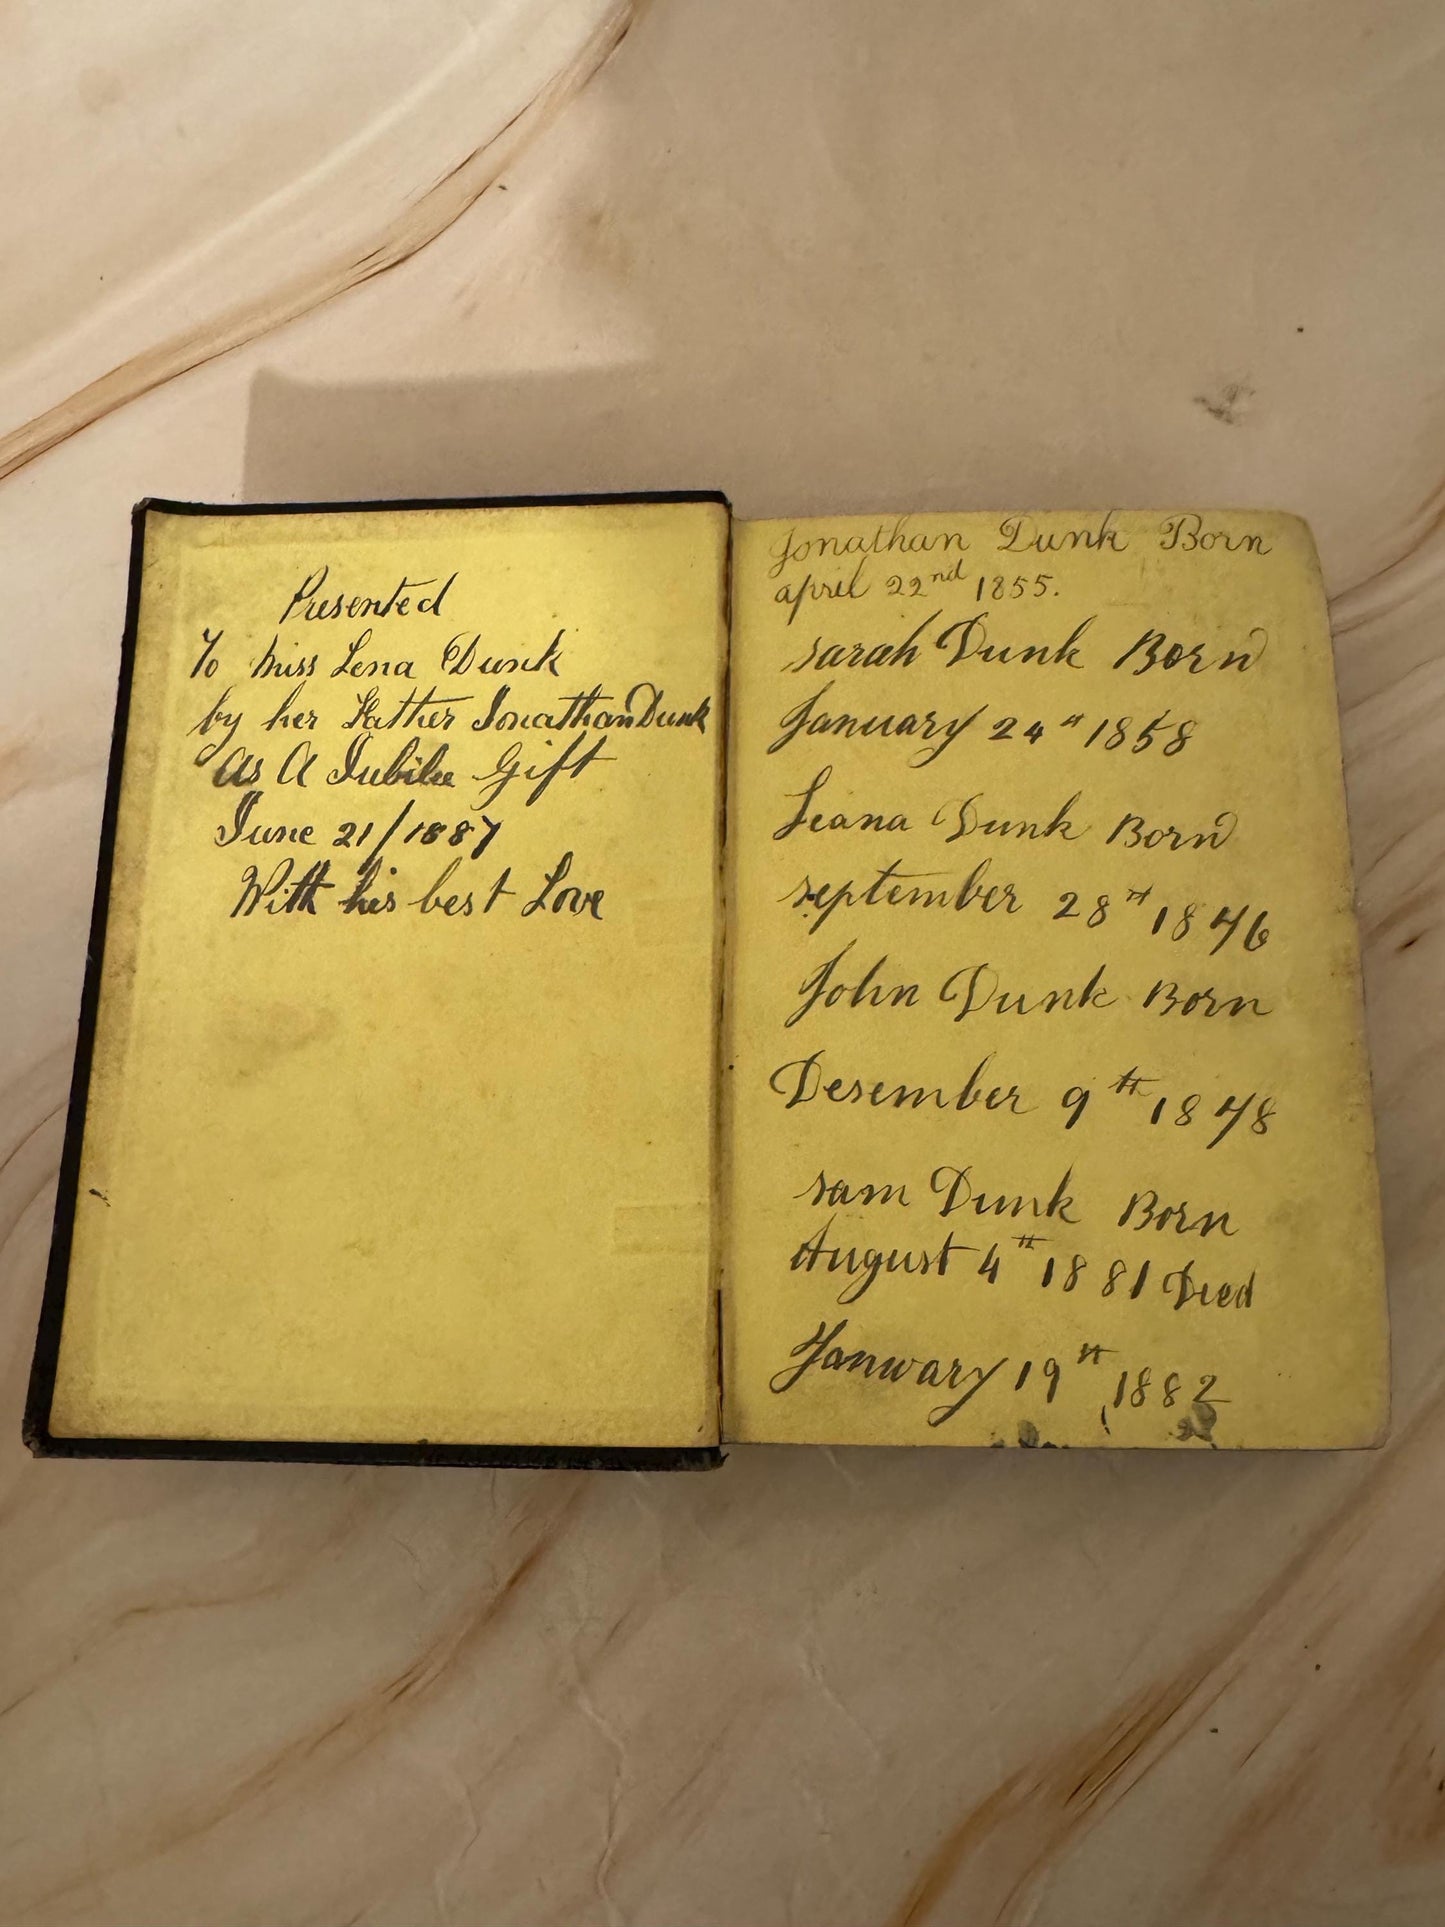 Presented
To Miss Lena Dunk
by her Father Jonathan Dunk
As A Jubilee Gift
June 21/1887
With his best Love
Jonathan Dunk Born
april 22nd 1855.
sarah Dunk Born
January 24th 1858
Leana Dunk Born
september 28th 1876
John Dunk Born
Desember 9th 1878
sam Dunk Born
August 4th 1881 Died
Janwary 19th 1882